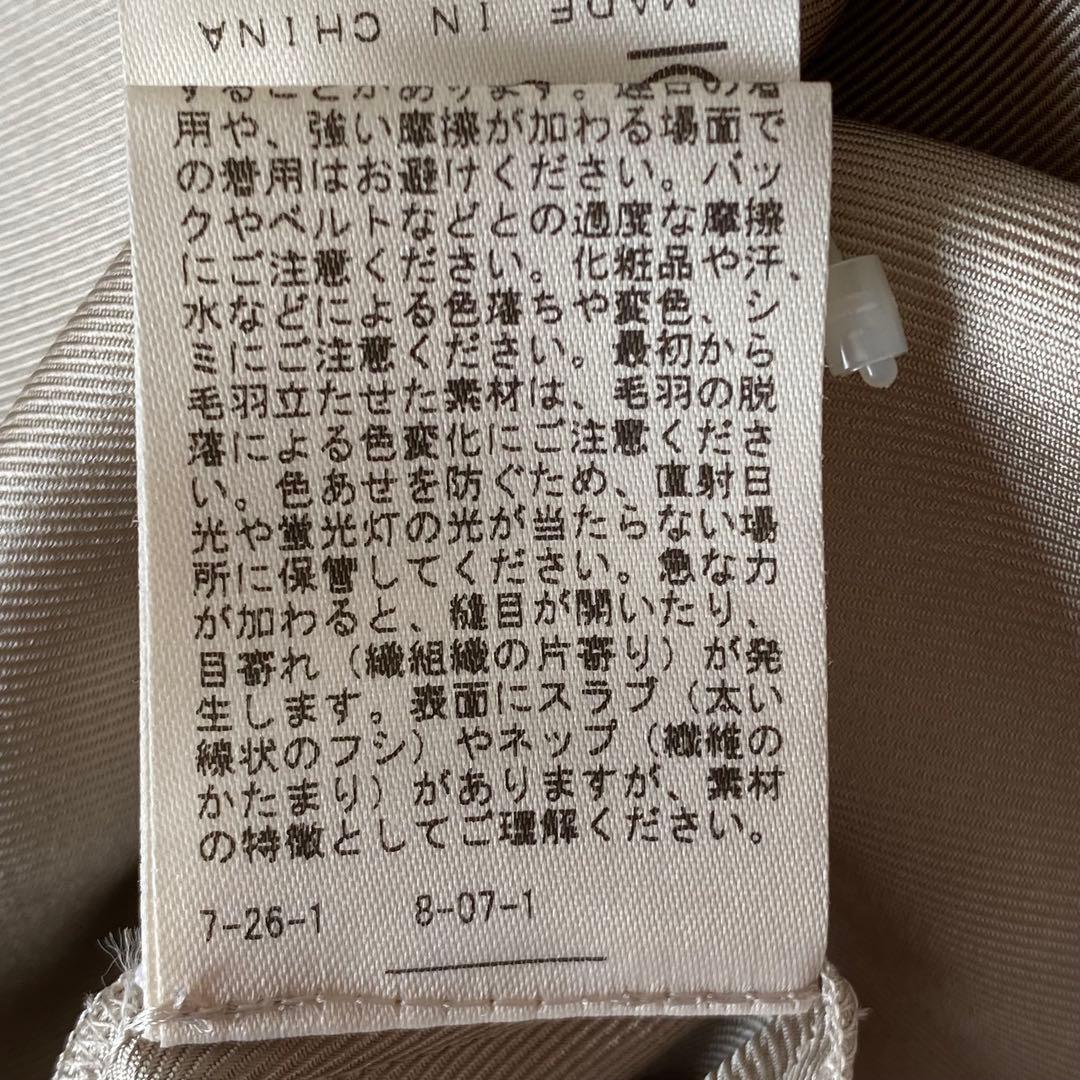 MADE IN CHINA
することがあります。連日の着
用や、強い摩擦が加わる場面で
の着用はお避けください。バッ
クやベルトなどとの過度な摩擦
にご注意ください。化粧品や汗、
水などによる色落ちや変色、シ
ミにご注意ください。最初から
毛羽立たせた素材は、毛羽の脱
落による色変化にご注意くださ
い。色あせを防ぐため、直射日
光や蛍光灯の光が当たらない場
所に保管してください。急な力
が加わると、縫目が開いたり、
目寄れ（織組織の片寄り）が発
生します。表面にスラブ（太い
線状のフシ）やネップ（繊維の
かたまり）がありますが、素材
の特徴としてご理解ください。
7-26-1 8-07-1